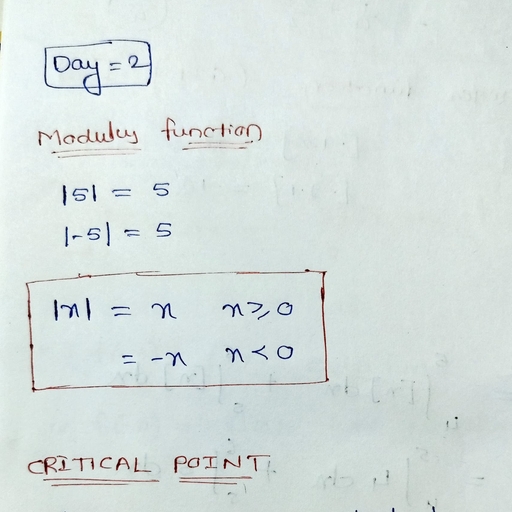 Day = 2
Modulus function
|5| = 5
|-5| = 5
|x| = x x ≥ 0
= -x x < 0
CRITICAL POINT